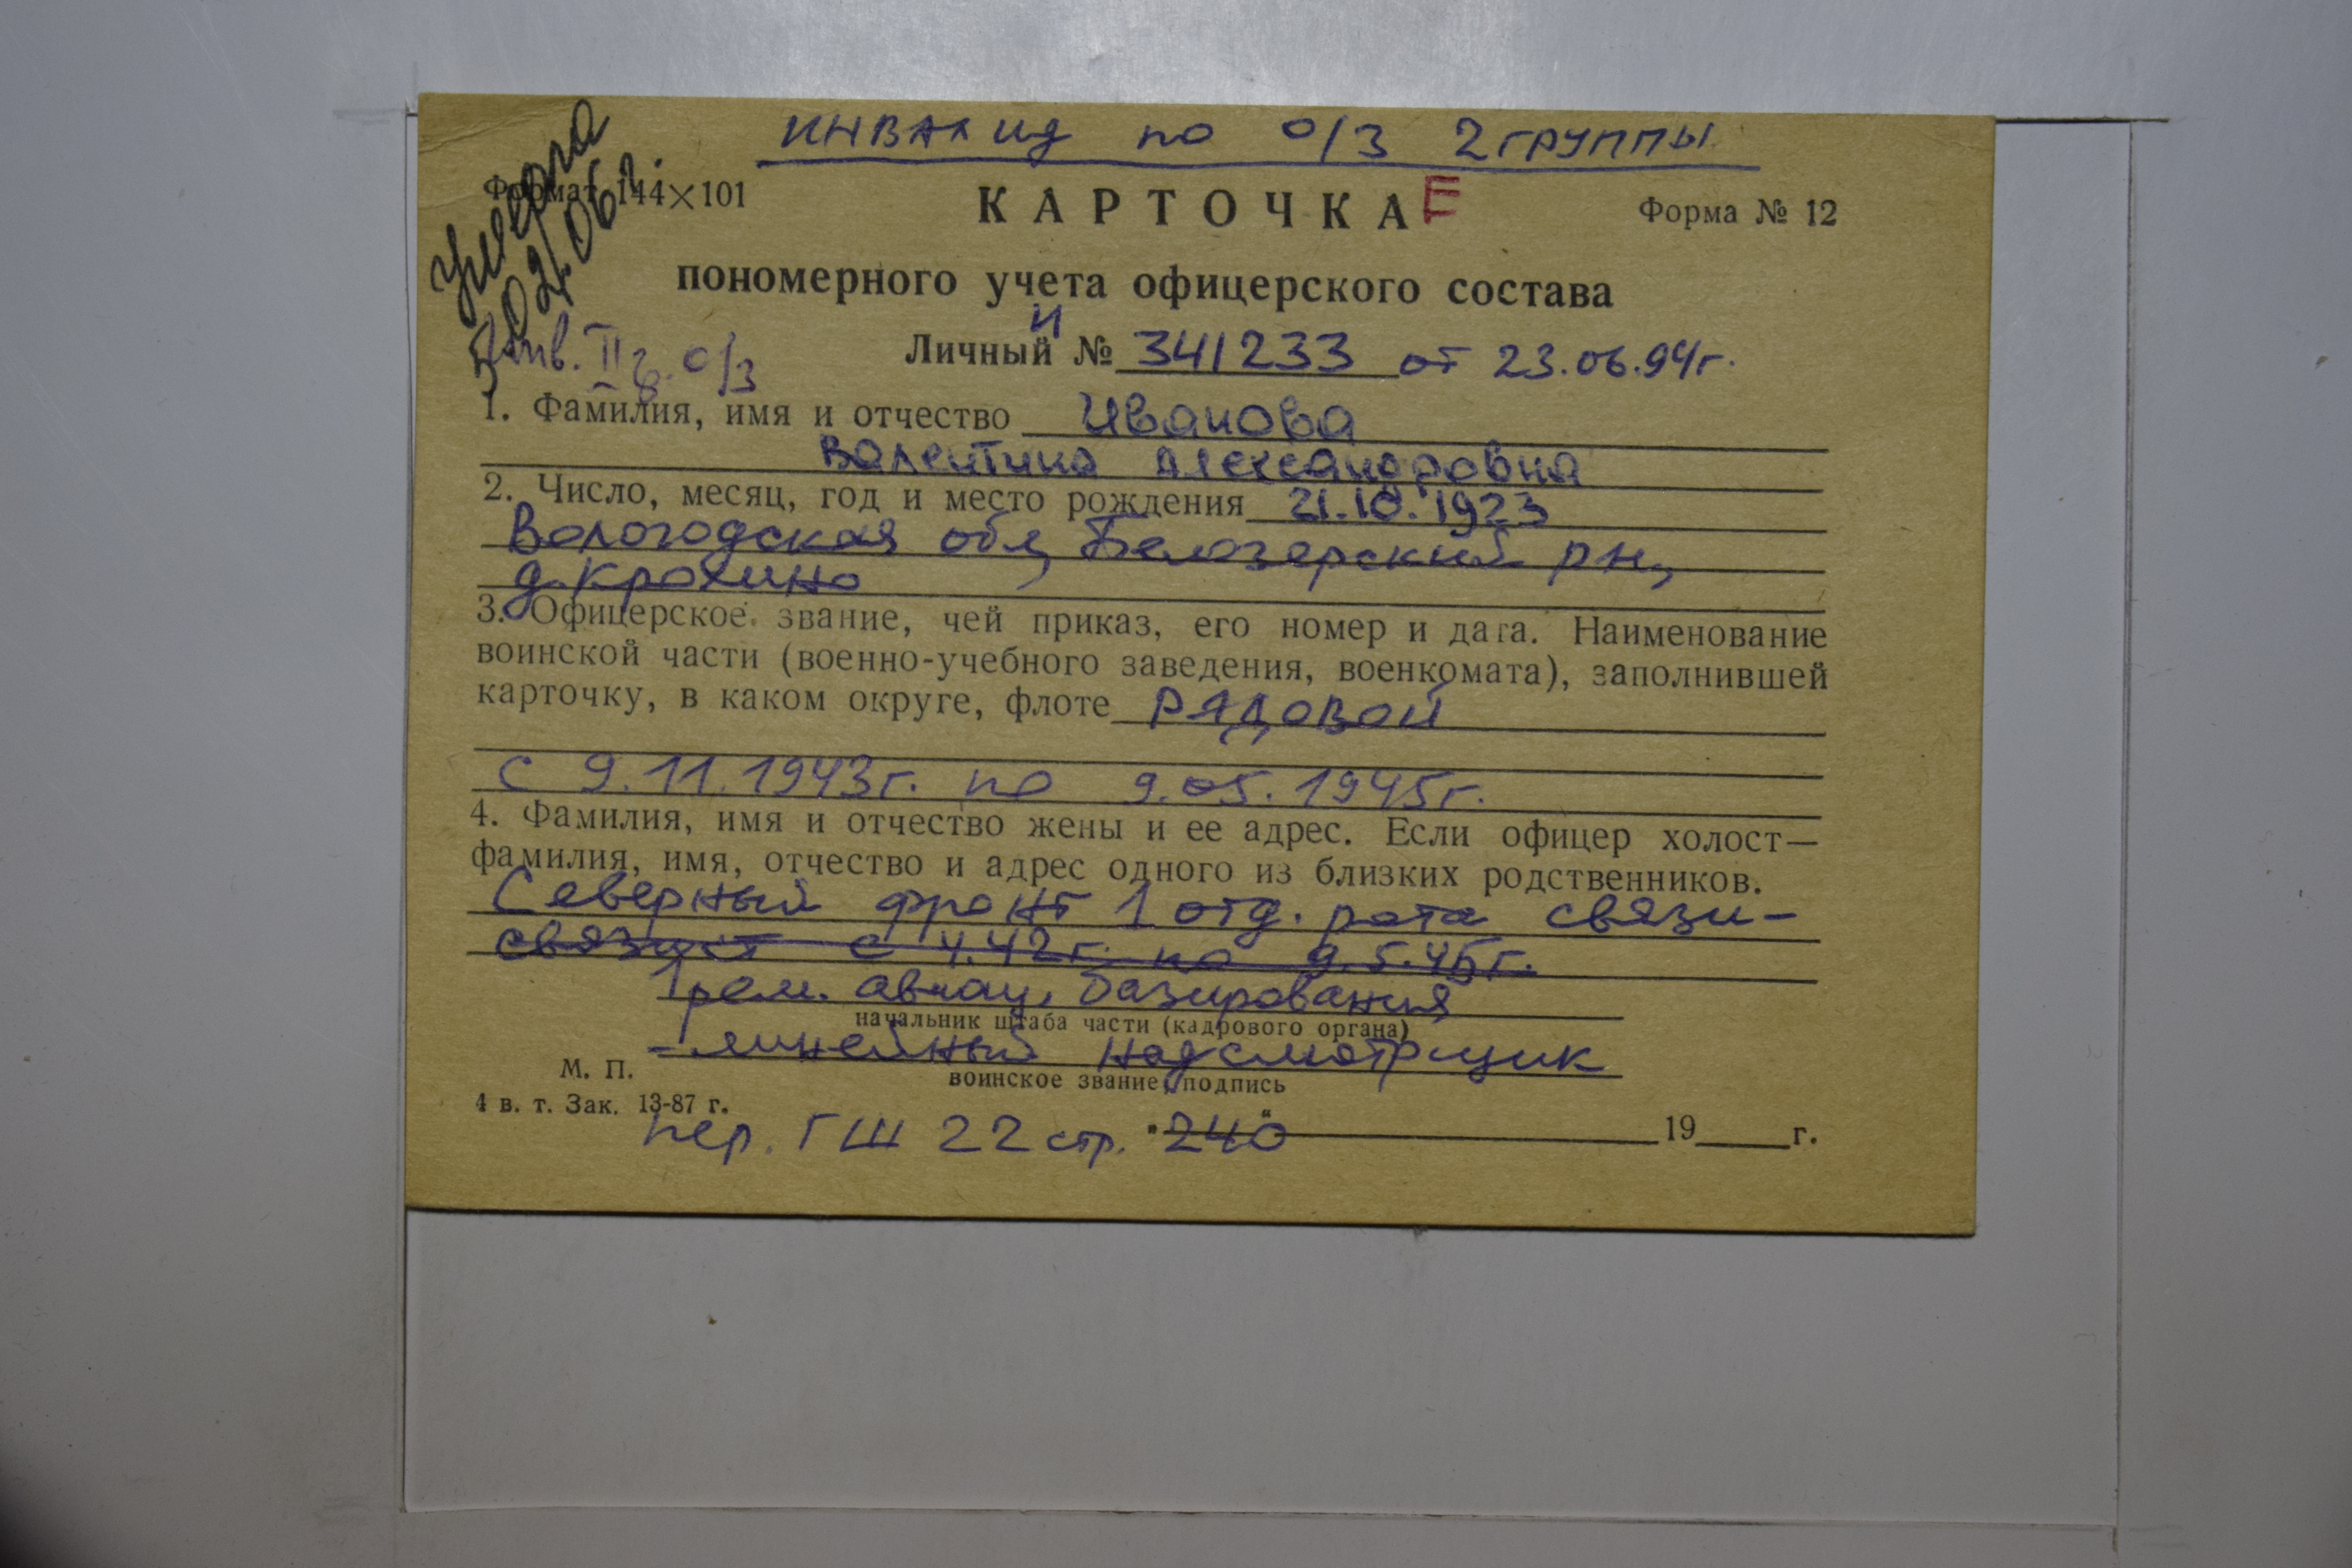 ИНВАЛИД по о/з 2 ГРУППЫ
умерла
02.06г.
Формат 144×101
КАРТОЧКА
Е
Форма № 12
пономерного учета офицерского состава
Инв. II г. о/з
И
Личный № 341233 от 23.06.94г.
1. Фамилия, имя и отчество Иванова
Валентина Александровна
2. Число, месяц, год и место рождения 21.10.1923
Вологодская обл, Белозерский р-н,
д. Крохино
3. Офицерское звание, чей приказ, его номер и дата. Наименование
воинской части (военно-учебного заведения, военкомата), заполнившей
карточку, в каком округе, флоте РЯДОВОЙ
с 9.11.1943г. по 9.05.1945г.
4. Фамилия, имя и отчество жены и ее адрес. Если офицер холост—
фамилия, имя, отчество и адрес одного из близких родственников.
Северный фронт 1 отд. рота связи-
связист с 4.42г. по 9.5.45г.
1 рем. авиац. базирования
начальник штаба части (кадрового органа)
-линейный надсмотрщик
М. П.
воинское звание, подпись
4 в. т. Зак. 13-87 г.
пер. ГШ 22 стр. 240
19 г.